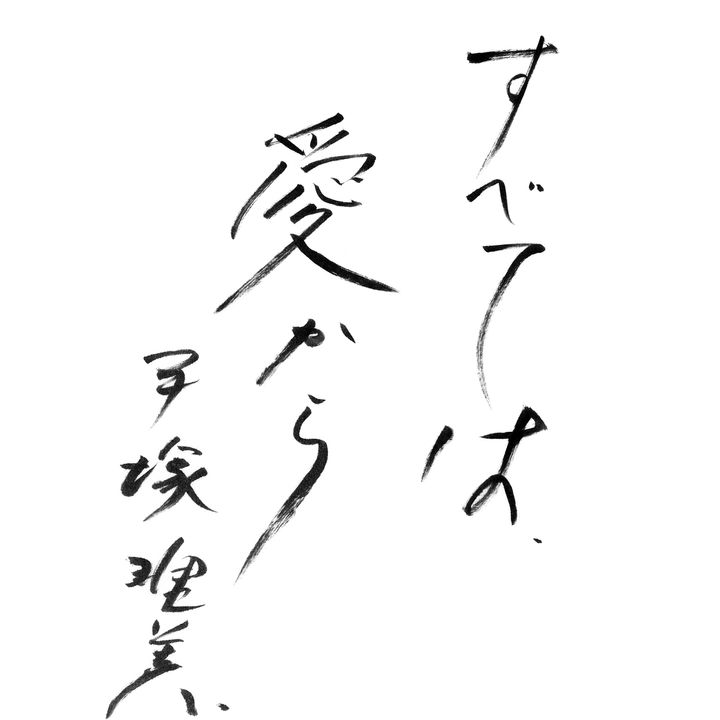 すべては、
愛から
手塚理美